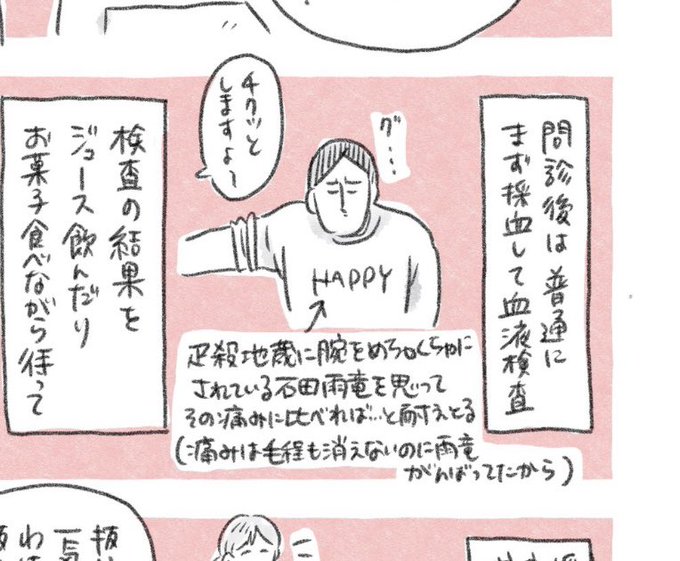 問診後は普通に
まず採血して血液検査
グ…
チクッと
しますよ〜
HAPPY
疋殺地蔵に腕をめちゃくちゃに
されている石田雨竜を思って
その痛みに比べれば…と耐えとる
(痛みは毛程も消えないのに雨竜
がんばってたから)
検査の結果を
ジュース飲んだり
お菓子食べながら待って